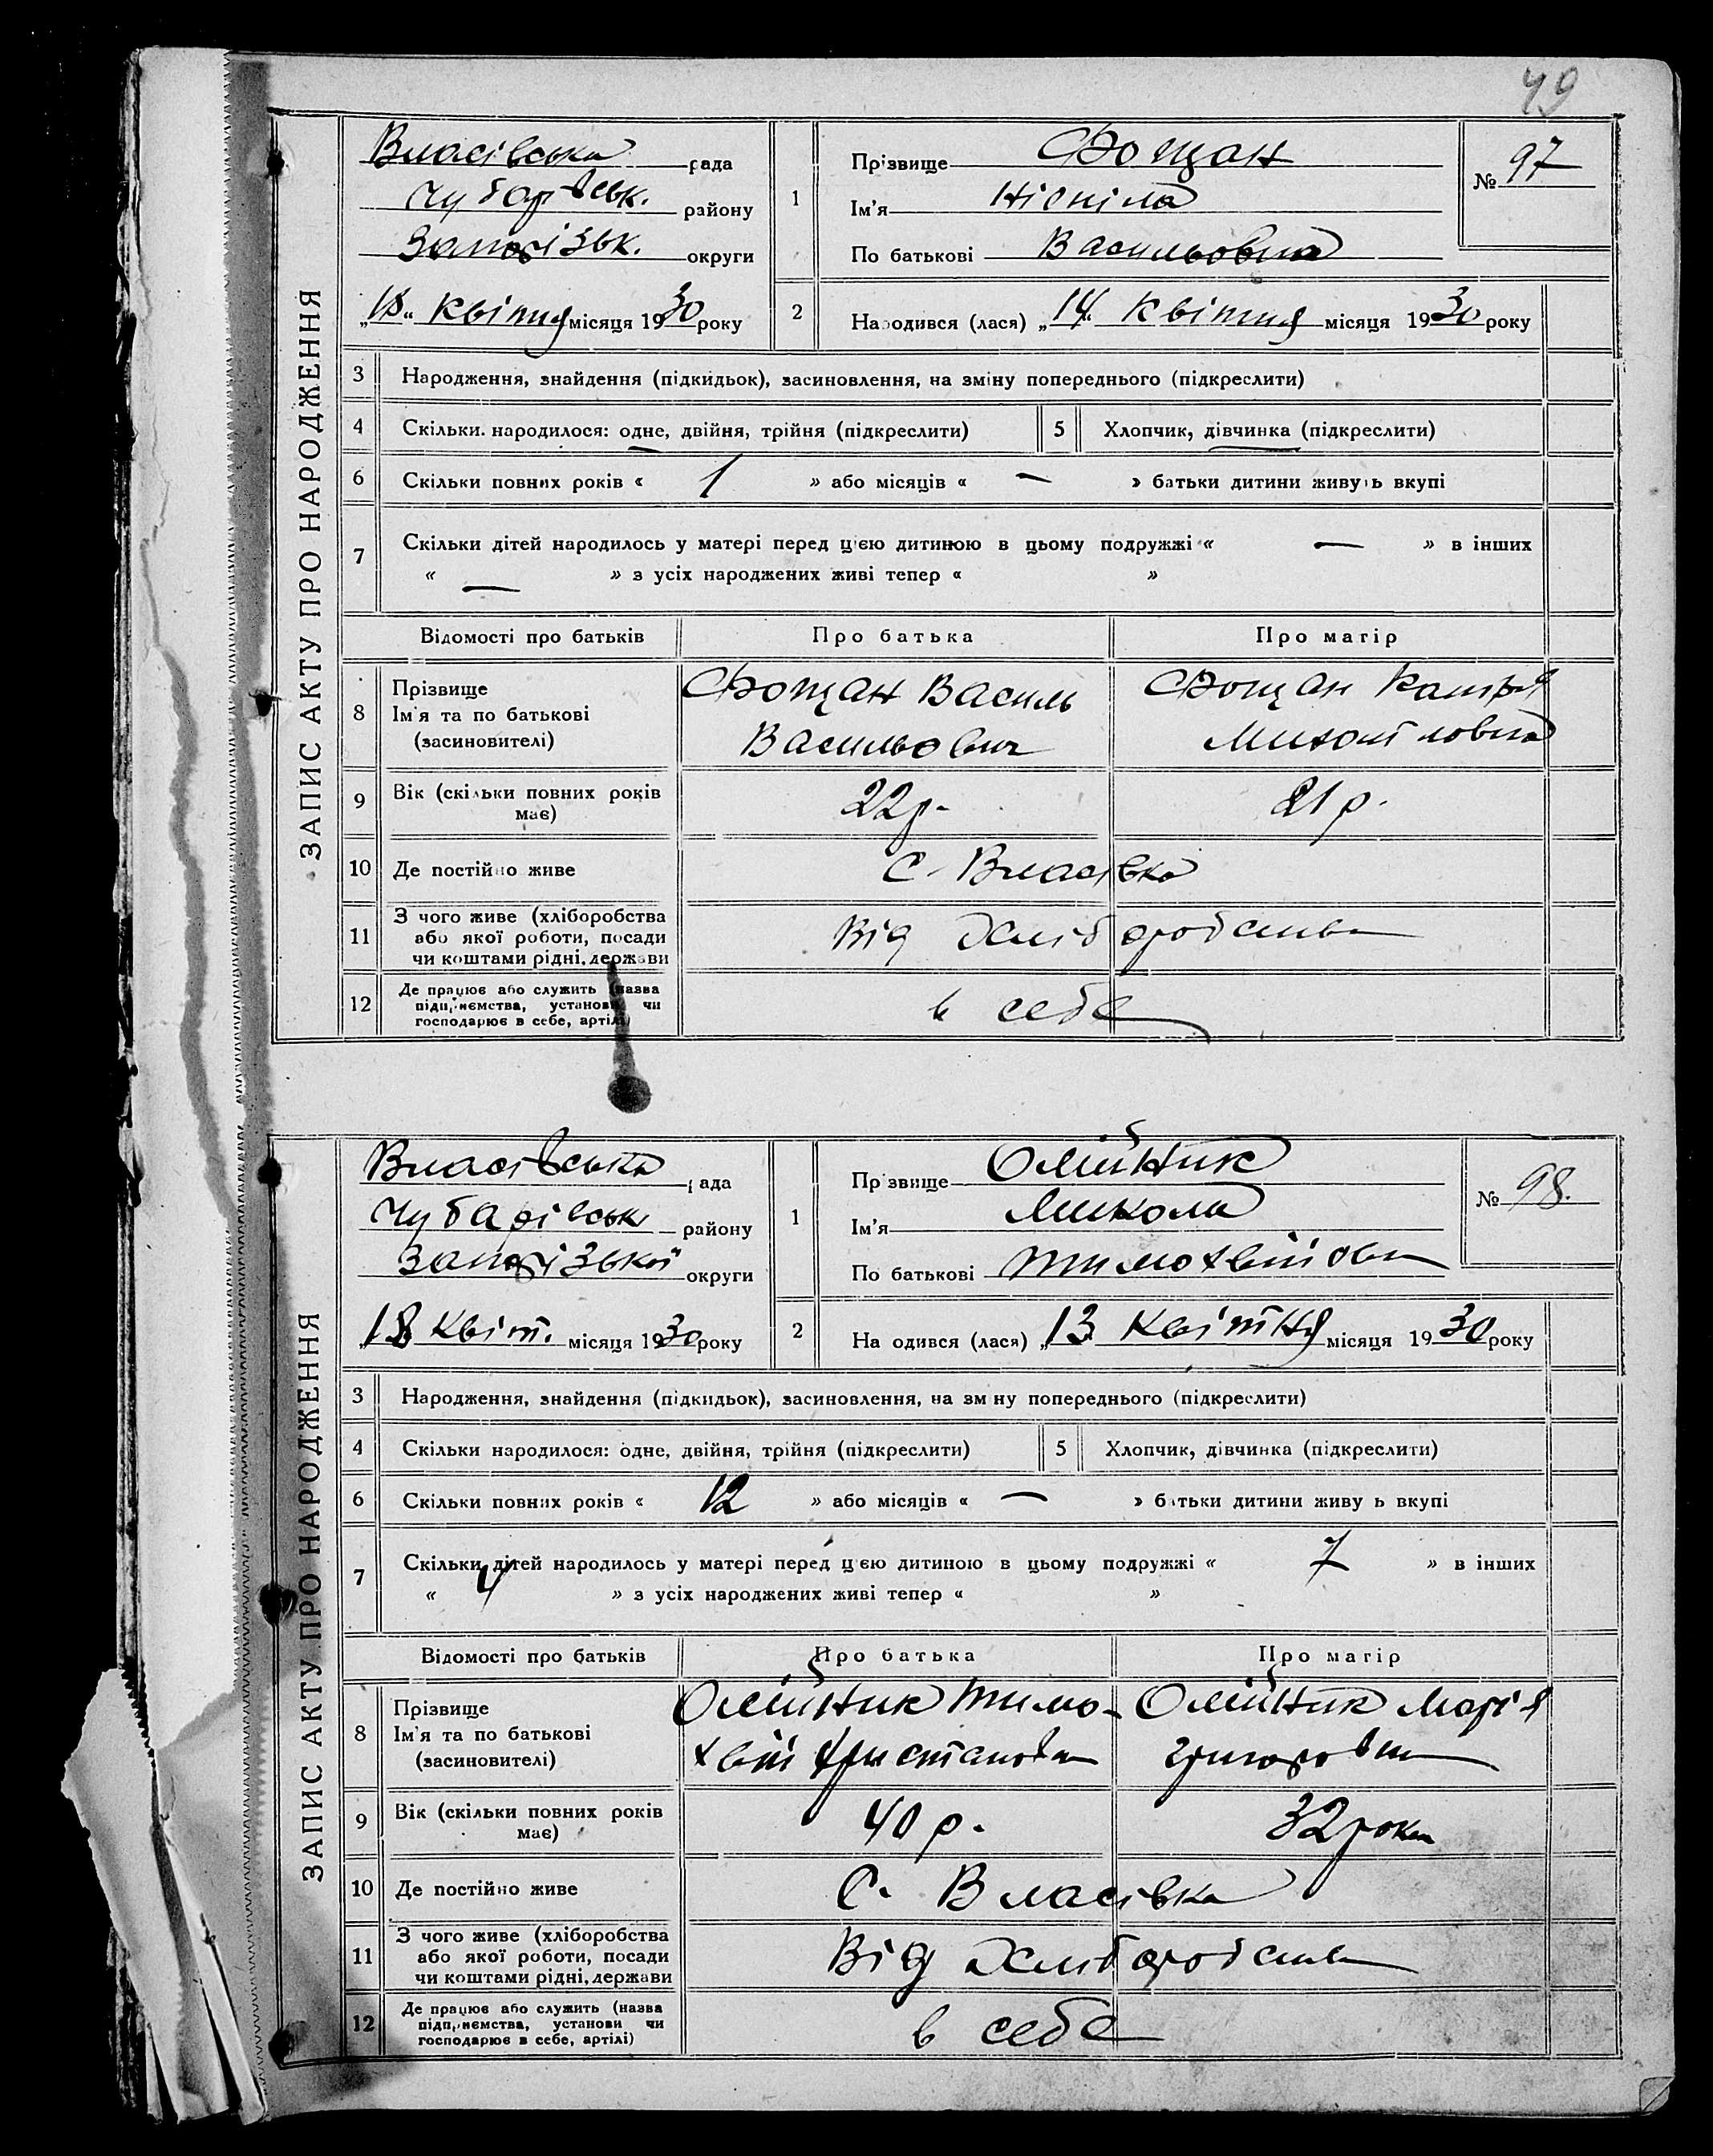 49
ЗАПИС АКТУ ПРО НАРОДЖЕННЯ
Власівська рада
Чубарівськ. району
Запорізьк. округи
„18“ квітня місяця 1930 року
1
Прізвище Фощан
Ім'я
По батькові Васильовна
№ 97
2
Народився (лася) „14“ квітня місяця 1930 року
3 Народження, знайдення (підкидьок), засиновлення, на зміну попереднього (підкреслити)
4 Скільки народилося: одне, двійня, трійня (підкреслити) 5 Хлопчик, дівчинка (підкреслити)
6 Скільки повних років « 1 » або місяців « — » батьки дитини живуть вкупі
7 Скільки дітей народилось у матері перед цією дитиною в цьому подружжі « — » в інших
« — » з усіх народжених живі тепер « »
Відомості про батьків Про батька Про матір
8 Прізвище
Ім'я та по батькові
(засиновителі)
Фощан Василь
Васильович
Фощан Катря
Михайловна
9 Вік (скільки повних років
має)
22 р. 21 р.
10 Де постійно живе с. Власівка
11 З чого живе (хліборобства
або якої роботи, посади
чи коштами рідні, держави
Від хліборобства
12 Де працює або служить (назва
підприємства, установи чи
господарює в себе, артілі)
в себе
ЗАПИС АКТУ ПРО НАРОДЖЕННЯ
Власівська рада
Чубарівськ району
Запорізької округи
„18 квіт. місяця 1930 року
1
Прізвище Олійник
Ім'я Микола
По батькові Тимохвійов
№ 98.
2
Народився (лася) „13 квітня місяця 1930 року
3 Народження, знайдення (підкидьок), засиновлення, на зміну попереднього (підкреслити)
4 Скільки народилося: одне, двійня, трійня (підкреслити) 5 Хлопчик, дівчинка (підкреслити)
6 Скільки повних років « 12 » або місяців « — » батьки дитини живуть вкупі
7 Скільки дітей народилось у матері перед цією дитиною в цьому подружжі « 7 » в інших
« 4 » з усіх народжених живі тепер « »
Відомості про батьків Про батька Про матір
8 Прізвище
Ім'я та по батькові
(засиновителі)
Олійник Тимо-
хвій
Олійник Марія
Григоровна
9 Вік (скільки повних років
має)
40 р. 32 роки
10 Де постійно живе с. Власівка
11 З чого живе (хліборобства
або якої роботи, посади
чи коштами рідні, держави
Від хліборобства
12 Де працює або служить (назва
підприємства, установи чи
господарює в себе, артілі)
в себе